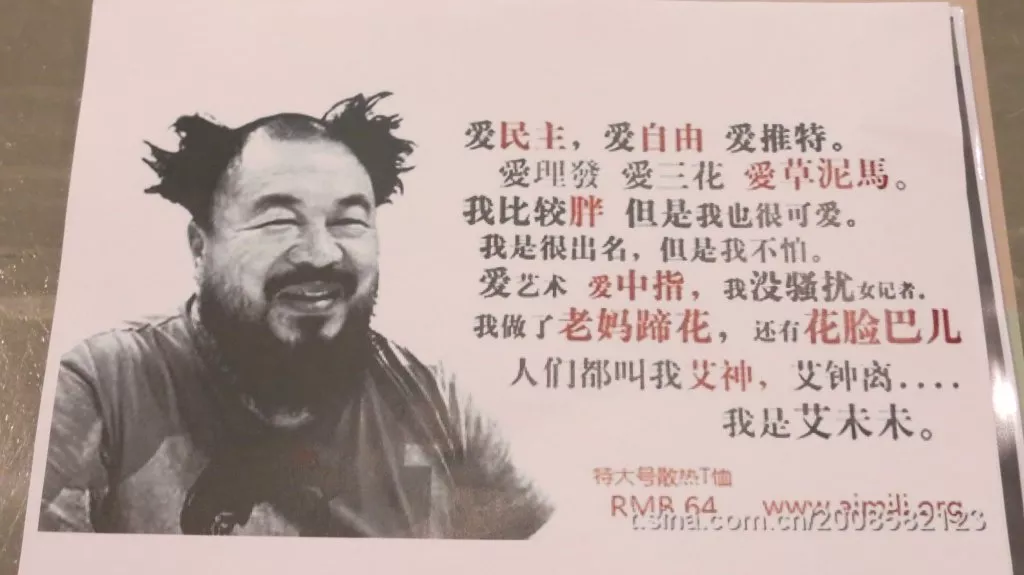 爱民主，爱自由 爱推特。
愛理發 愛三花 愛草泥馬。
我比较胖 但是我也很可爱。
我是很出名，但是我不怕。
爱艺术 爱中指，我没骚扰女记者.
我做了老妈蹄花，还有花脸巴儿
人们都叫我艾神，艾钟离....
我是艾未未。
特大号散热T恤
RMB 64 www.aimili.org
t.sina.com.cn/2008582123